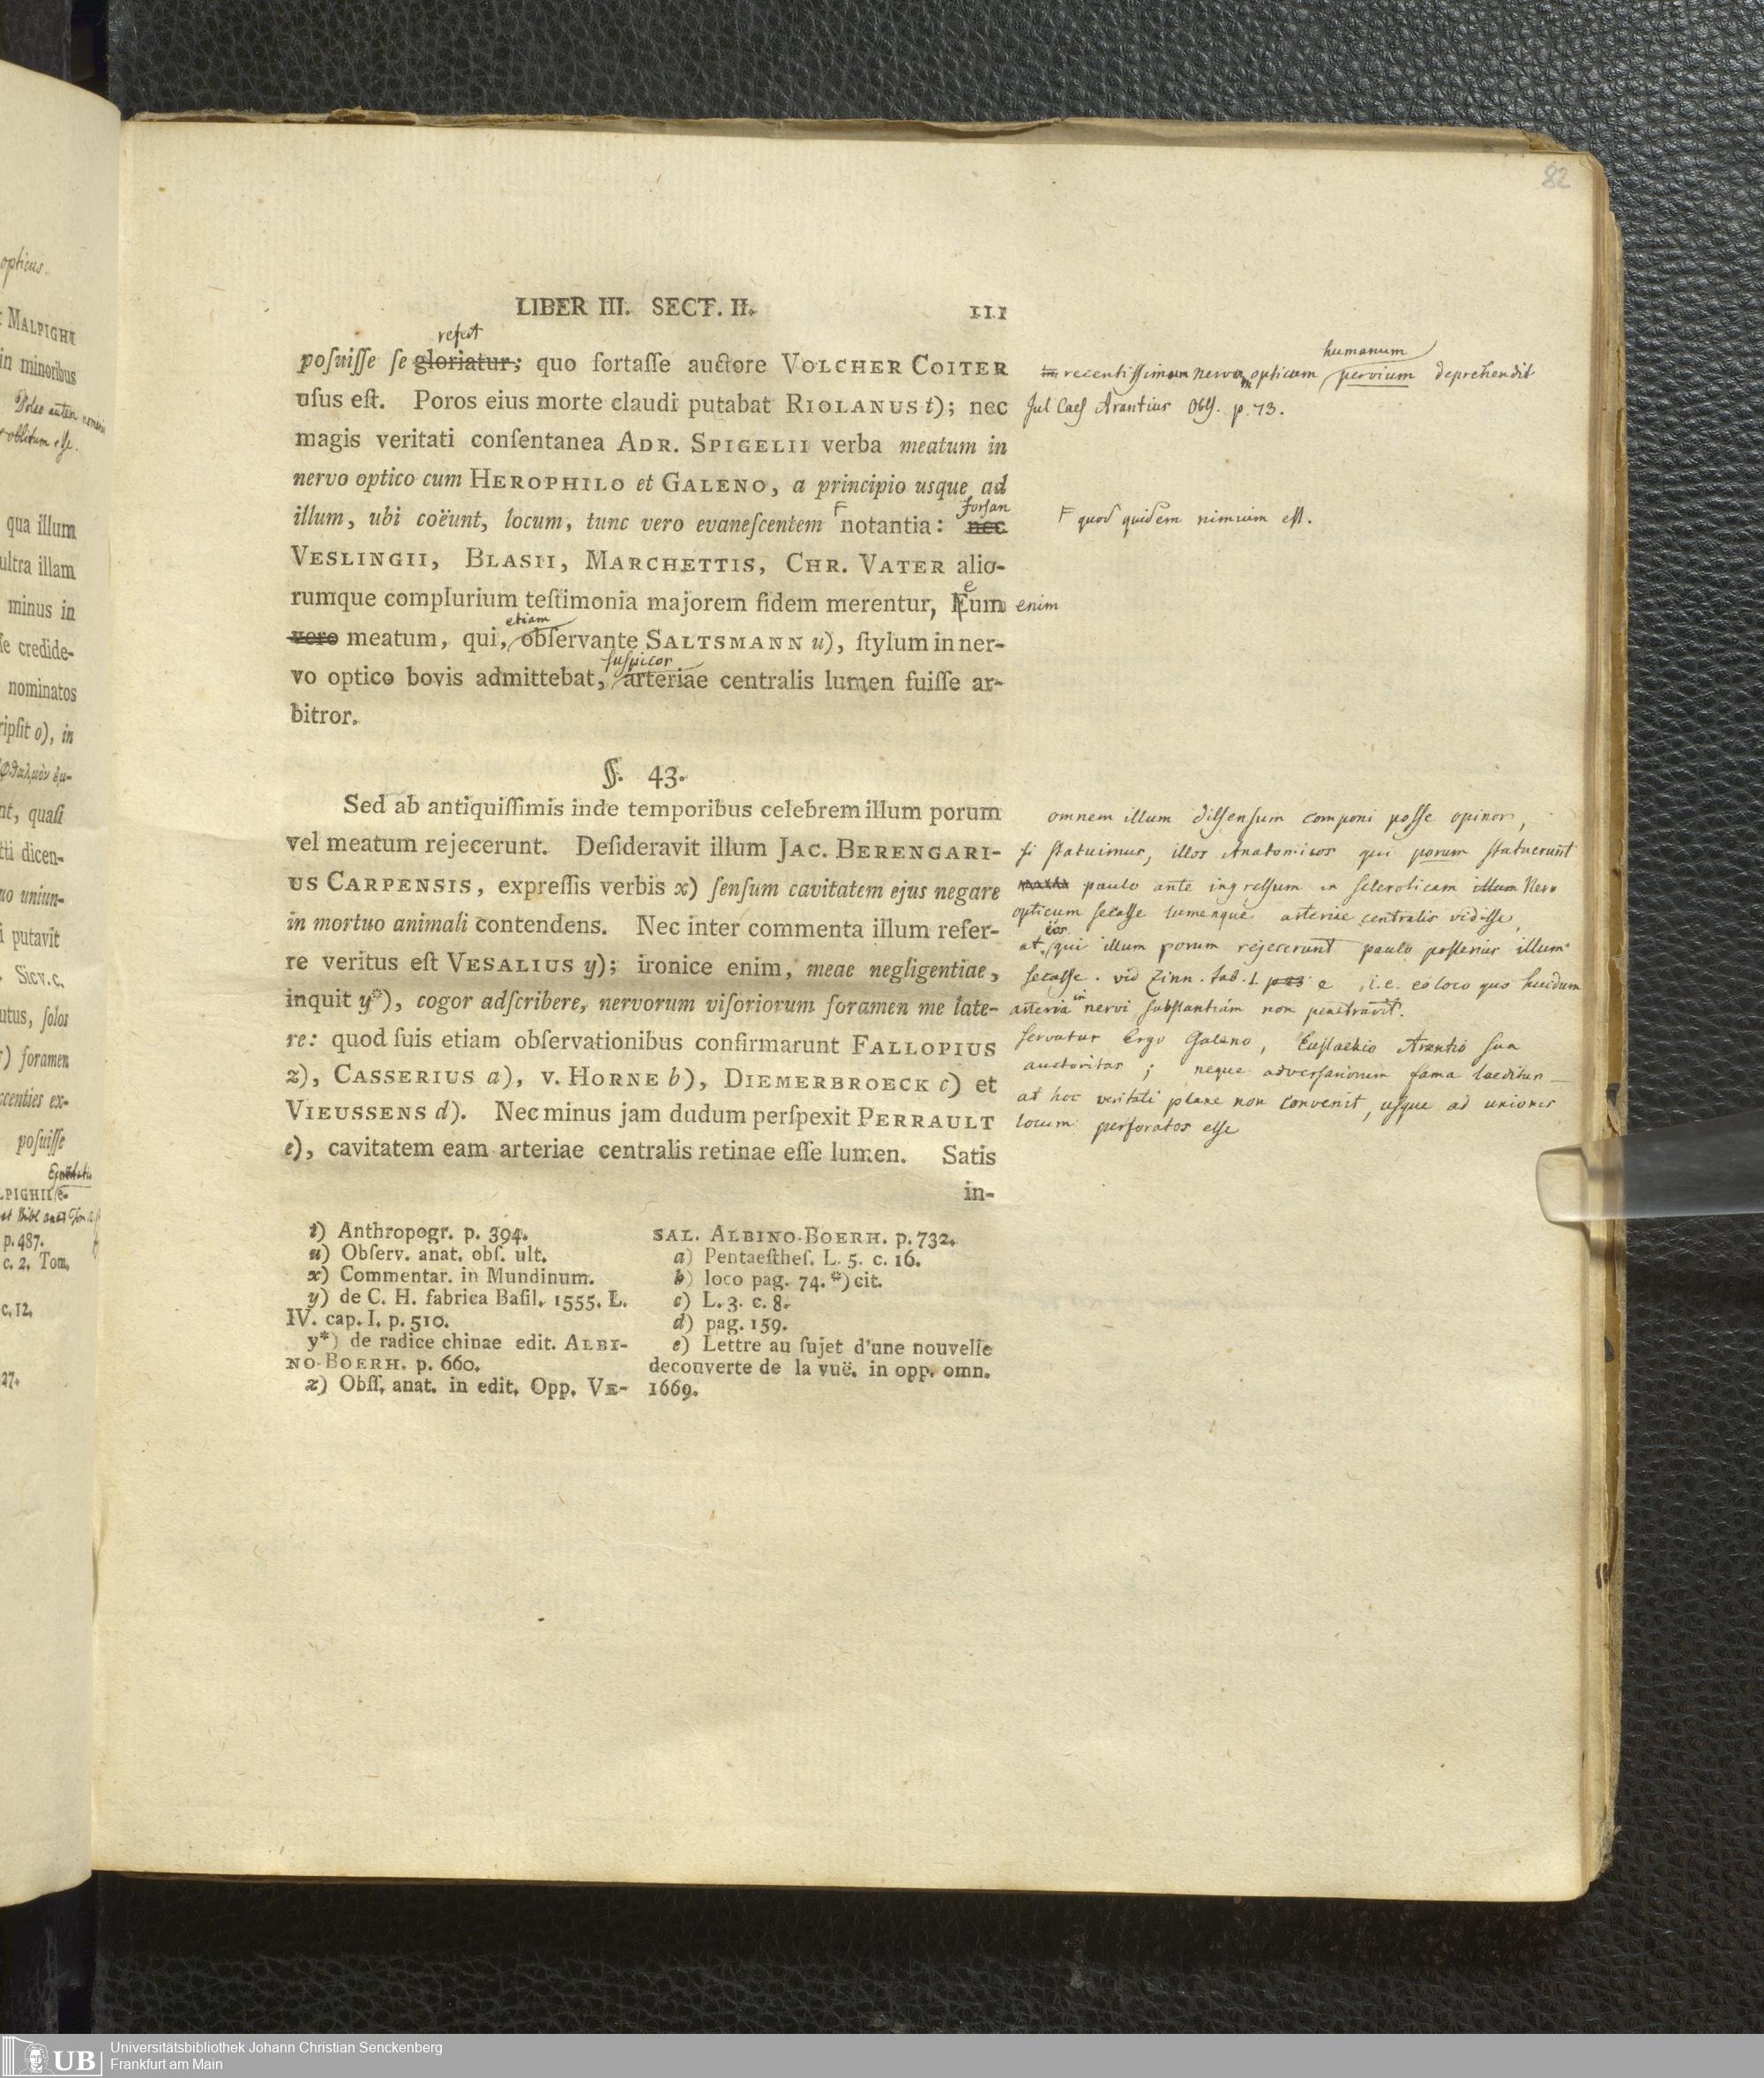 82
LIBER III. SECT. II. 111
refert
poſuiſſe ſe gloriatur; quo fortaſſe auctore VOLCHER COITER
uſus eſt. Poros eius morte claudi putabat RIOLANUS t); nec
magis veritati conſentanea ADR. SPIGELII verba meatum in
nervo optico cum HEROPHILO et GALENO, a principio usque ad
forſan
illum, ubi coëunt, locum, tunc vero evaneſcentem F notantia: nec
VESLINGII, BLASII, MARCHETTIS, CHR. VATER alio-
rumque complurium teſtimonia majorem fidem merentur, Eum enim
e
etiam
vero meatum, qui, obſervante SALTSMANN u), ſtylum in ner-
ſuſpicor
vo optico bovis admittebat, arteriae centralis lumen fuiſſe ar-
bitror.
§. 43.
Sed ab antiquiſſimis inde temporibus celebrem illum porum
vel meatum rejecerunt. Deſideravit illum JAC. BERENGARI-
US CARPENSIS, expreſſis verbis x) ſenſum cavitatem ejus negare
in mortuo animali contendens. Nec inter commenta illum refer-
re veritus eſt VESALIUS y); ironice enim, meae negligentiae,
inquit y*), cogor adſcribere, nervorum viſoriorum foramen me late-
re: quod ſuis etiam obſervationibus confirmarunt FALLOPIUS
z), CASSERIUS a), v. HORNE b), DIEMERBROECK c) et
VIEUSSENS d). Nec minus jam dudum perſpexit PERRAULT
e), cavitatem eam arteriae centralis retinae eſſe lumen. Satis
in-
t) Anthropogr. p. 394.
u) Obſerv. anat. obſ. ult.
x) Commentar. in Mundinum.
y) de C. H. fabrica Baſil. 1555. L.
IV. cap. I. p. 510.
y*) de radice chinae edit. ALBI-
NO-BOERH. p. 660.
z) Obſſ. anat. in edit. Opp. VE-
SAL. ALBINO-BOERH. p. 732.
a) Pentaeſtheſ. L. 5. c. 16.
b) loco pag. 74. *) cit.
c) L. 3. c. 8.
d) pag. 159.
e) Lettre au ſujet d'une nouvelle
decouverte de la vuë. in opp. omn.
1669.
humanum
in recentiſſimum nervum opticum pervium deprehendit
Jul Caeſ Arantius Obſ. p. 73.
F quod quidem nimium eſt.
omnem illum diſſenſum componi poſſe opinor,
ſi ſtatuimus, illos Anatomicos qui porum ſtatuerunt
paulo ante ingreſſum in ſcleroticam illum Nerv
opticum ſecaſſe lumenque arteriae centralis vidiſſe,
eos
at qui illum porum rejecerunt paulo poſterius illum
ſecaſſe. vid Zinn. tab. 1. e, i.e. eo loco quo
arteria in nervi ſubſtantiam non penetravit.
ſervatur ergo Galeno, Euſtachio Arantio ſua
auctoritas; neque adverſariorum fama laeditur —
at hoc veritati plane non convenit, uſque ad unionis
locum perforatos eſſe
opticus.
: MALPIGHI
in minoribus
Doleo autem
oblitum eſſe.
qua illum
ultra illam
minus in
ſe credide-
nominatos
ripſit o), in
nt, quaſi
tti dicen-
uo uniun-
i putavit
. Sicv.c.
utus, ſolos
r) foramen
ccenties ex-
poſuiſſe
LPIGHII
p. 487.
c. 2. Tom.
c. 12.
27.
UB
Universitätsbibliothek Johann Christian Senckenberg
Frankfurt am Main